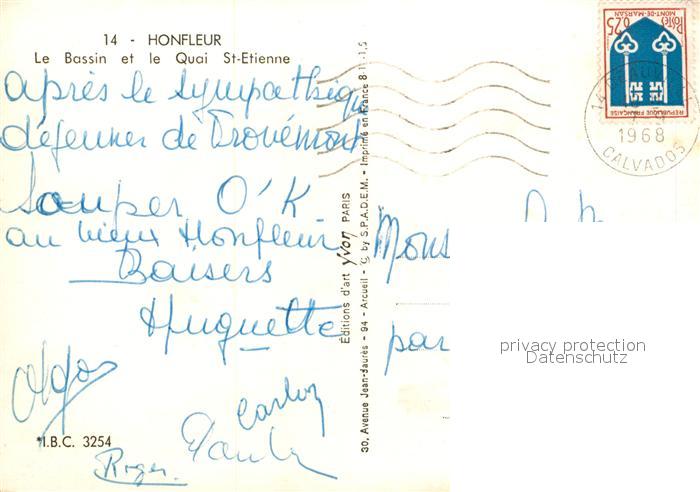 14 - HONFLEUR
Le Bassin et le Quai St-Etienne
après le sympathique
déjeuner de Trouémont
Souper O'K
au vieux Honfleur
Baisers
Huguette
Carlos
Roger
*I.B.C. 3254
Éditions d'art Yvon PARIS
30, Avenue Jean-Jaurès - 94 - Arcueil - © by S.P.A.D.E.M. - Imprimé en France 8-11.1.5
Mons
par
privacy protection
Datenschutz
0,25
Postes
MONT-DE-MARSAN
REPUBLIQUE FRANÇAISE
1968
CALVADOS